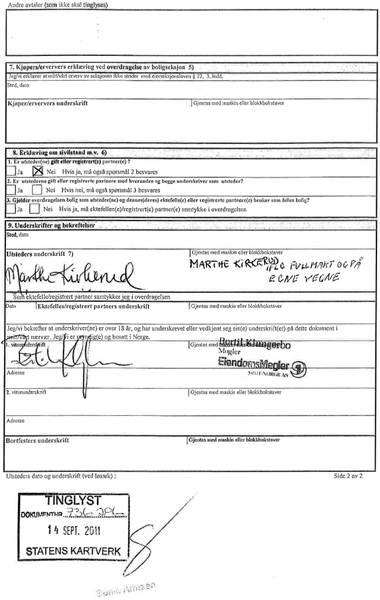 Andre avtaler (som ikke skal tinglyses)
7. Kjøpers/erververs erklæring ved overdragelse av boligseksjon 5)
Jeg/vi erklærer at mitt/vårt erverv av seksjonen ikke strider mot eierseksjonsloven § 22, 3. ledd.
Sted, dato
Kjøpers/erververs underskrift
Gjentas med maskin eller blokkbokstaver
8. Erklæring om sivilstand m.v. 6)
1. Er utsteder(ne) gift eller registrert(e) partner(e)?
Ja Nei Hvis ja, må også spørsmål 2 besvares
2. Er utstederne gift eller registrerte partnere med hverandre og begge underskriver som utsteder?
Ja Nei Hvis nei, må også spørsmål 3 besvares
3. Gjelder overdragelsen bolig som utsteder(ne) og dennes(deres) ektefelle(r) eller registrerte partner(e) bruker som felles bolig?
Ja Nei Hvis ja, må ektefellen(e)/registrert(e) partner(e) samtykke i overdragelsen
9. Underskrifter og bekreftelser
Sted, dato
Utsteders underskrift 7)
Gjentas med maskin eller blokkbokstaver
Marthe Kirkerud
MARTHE KIRKERUD
IFLG FULLMAKT OG PÅ
EGNE VEGNE
Som ektefelle/registrert partner samtykker jeg i overdragelsen
Dato
Ektefelles/registrert partners underskrift
Gjentas med maskin eller blokkbokstaver
Jeg/vi bekrefter at underskriver(ne) er over 18 år, og har underskrevet eller vedkjent seg sin(e) underskrift(er) på dette dokument i
mitt/vårt nærvær. Jeg/vi er myndig(e) og bosatt i Norge.
1. vitneunderskrift
Gjentas med
Bertil Klungerbo
Megler
EiendomsMegler
Adresse
2. vitneunderskrift
Gjentas med maskin eller blokkbokstaver
Adresse
Bortfesters underskrift
Gjentas med maskin eller blokkbokstaver
Utsteders dato og underskrift (ved fastsk) :
Side 2 av 2
TINGLYST
DOKUMENTNR
14 SEPT. 2011
STATENS KARTVERK